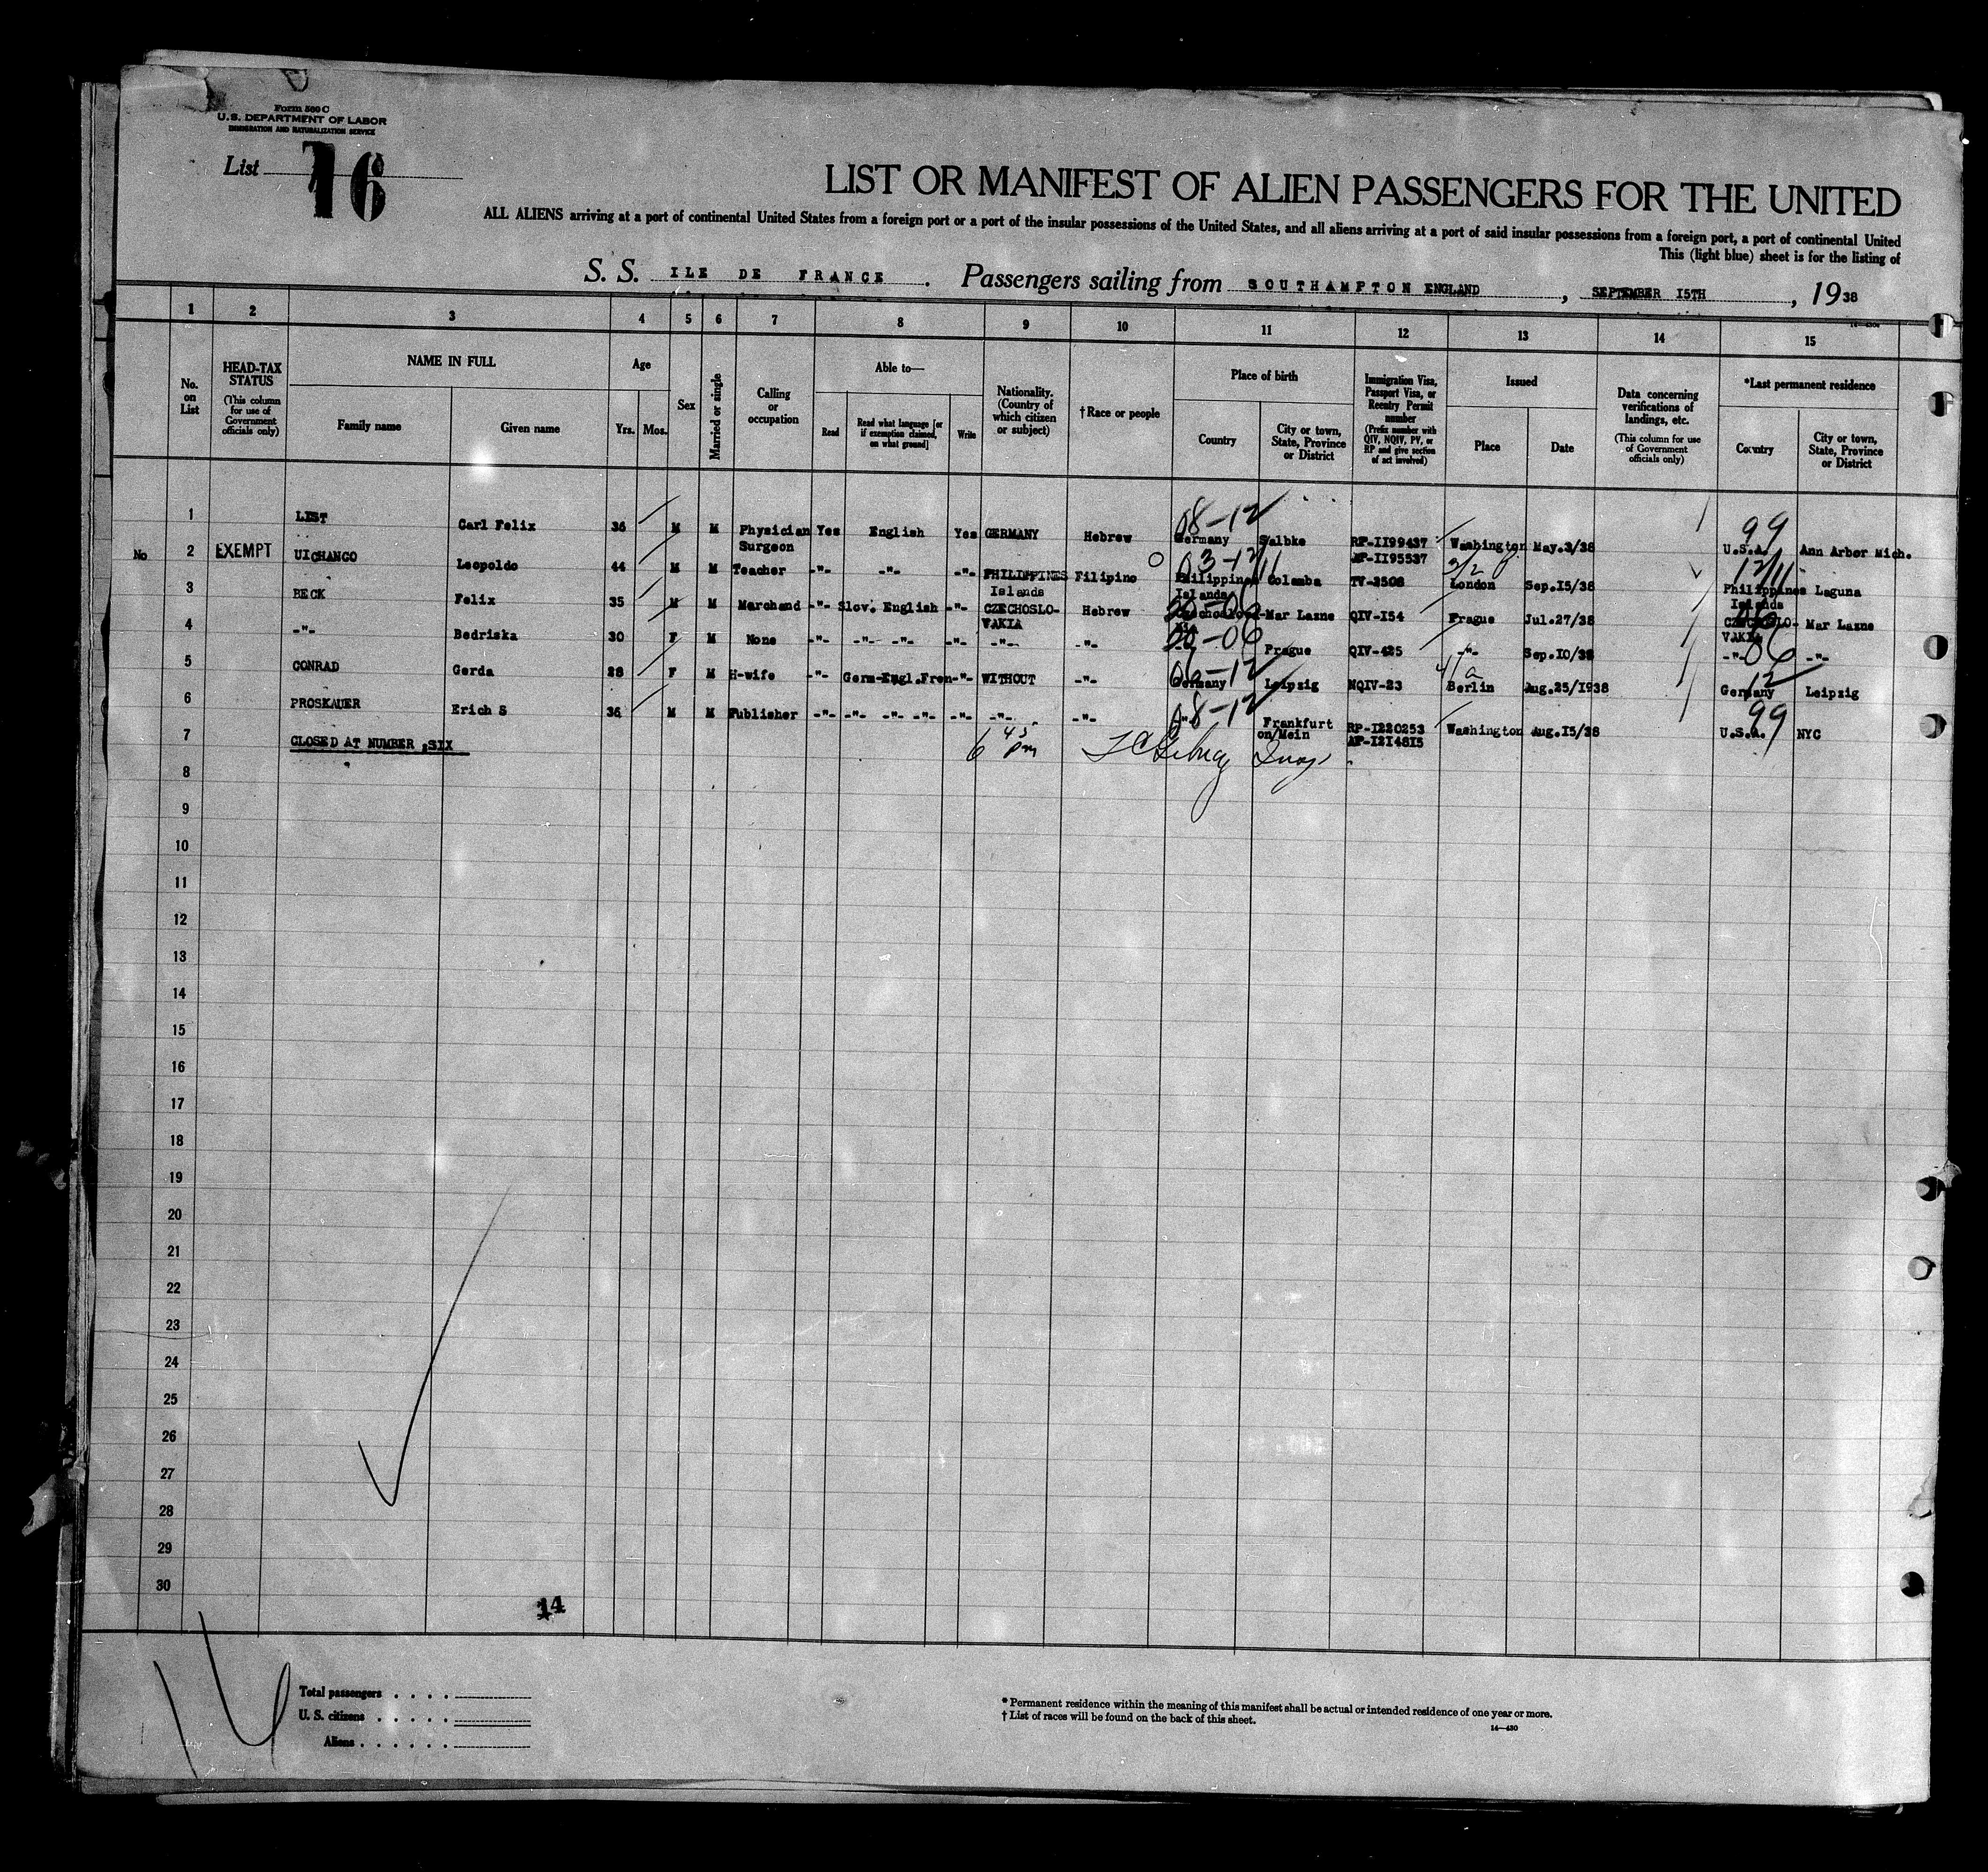 Form 500 C
U.S. DEPARTMENT OF LABOR
IMMIGRATION AND NATURALIZATION SERVICE
List 16
LIST OR MANIFEST OF ALIEN PASSENGERS FOR THE UNITED
ALL ALIENS arriving at a port of continental United States from a foreign port or a port of the insular possessions of the United States, and all aliens arriving at a port of said insular possessions from a foreign port, a port of continental United
This (light blue) sheet is for the listing of
S. S. ILE DE FRANCE . Passengers sailing from SOUTHAMPTON ENGLAND , SEPTEMBER 15TH , 1938
1 2 3 4 5 6 7 8 9 10 11 12 13 14 15
No. on List
HEAD-TAX STATUS
(This column for use of Government officials only)
NAME IN FULL
Family name Given name
Age
Yrs. Mos.
Sex
Married or single
Calling or occupation
Able to—
Read
Read what language [or if exemption claimed, on what ground]
Write
Nationality. (Country of which citizen or subject)
†Race or people
Place of birth
Country
City or town, State, Province or District
Immigration Visa, Passport Visa, or Reentry Permit number
(Prefix number with QIV, NQIV, PV, or RP and give section of act involved)
Issued
Place Date
Data concerning verifications of landings, etc.
(This column for use of Government officials only)
*Last permanent residence
Country
City or town, State, Province or District
1 LIST Carl Felix 36 M M Physician Surgeon Yes English Yes GERMANY Hebrew 08-12 Germany Salbke RP-II99437 AP-II95537 Washington May.3/38 99 U.S.A. Ann Arbor Mich.
No 2 EXEMPT UICHANCO Leopoldo 44 M M Teacher -"- -"- -"- PHILIPPINES Islands Filipino Philippines Islands Colamba TV-3508 3/2 London Sep.15/38 Philippines Islands Laguna
3 BECK Felix 35 M M Marchand -"- Slov. English -"- CZECHOSLO-VAKIA Hebrew Mar Lazne QIV-I54 Prague Jul.27/38 CZECHOSLO-VAKIA Mar Lazne
4 -"- Bedriska 30 F M None -"- -"- -"- -"- -"- -"- Prague QIV-425 -"- Sep.10/38 -"- 06 -"-
5 CONRAD Gerda 28 F M H-wife -"- Germ-Engl.Fren -"- WITHOUT -"- Germany Leipzig NQIV-23 4/a Berlin Aug.25/1938 12 Germany Leipzig
6 PROSKAUER Erich S 36 M M Publisher -"- -"- -"- -"- -"- -"- -"- 08-12 -"- Frankfurt on/Mein RP-I220253 AP-I2I48I5 Washington Aug.15/38 99 U.S.A. NYC
7 CLOSED AT NUMBER :SIX 6 45 pm
8
9
10
11
12
13
14
15
16
17
18
19
20
21
22
23
24
25
26
27
28
29
30
14
Total passengers . . . .
U. S. citizens . . . . .
Aliens . . . . . .
* Permanent residence within the meaning of this manifest shall be actual or intended residence of one year or more.
† List of races will be found on the back of this sheet.
14—430